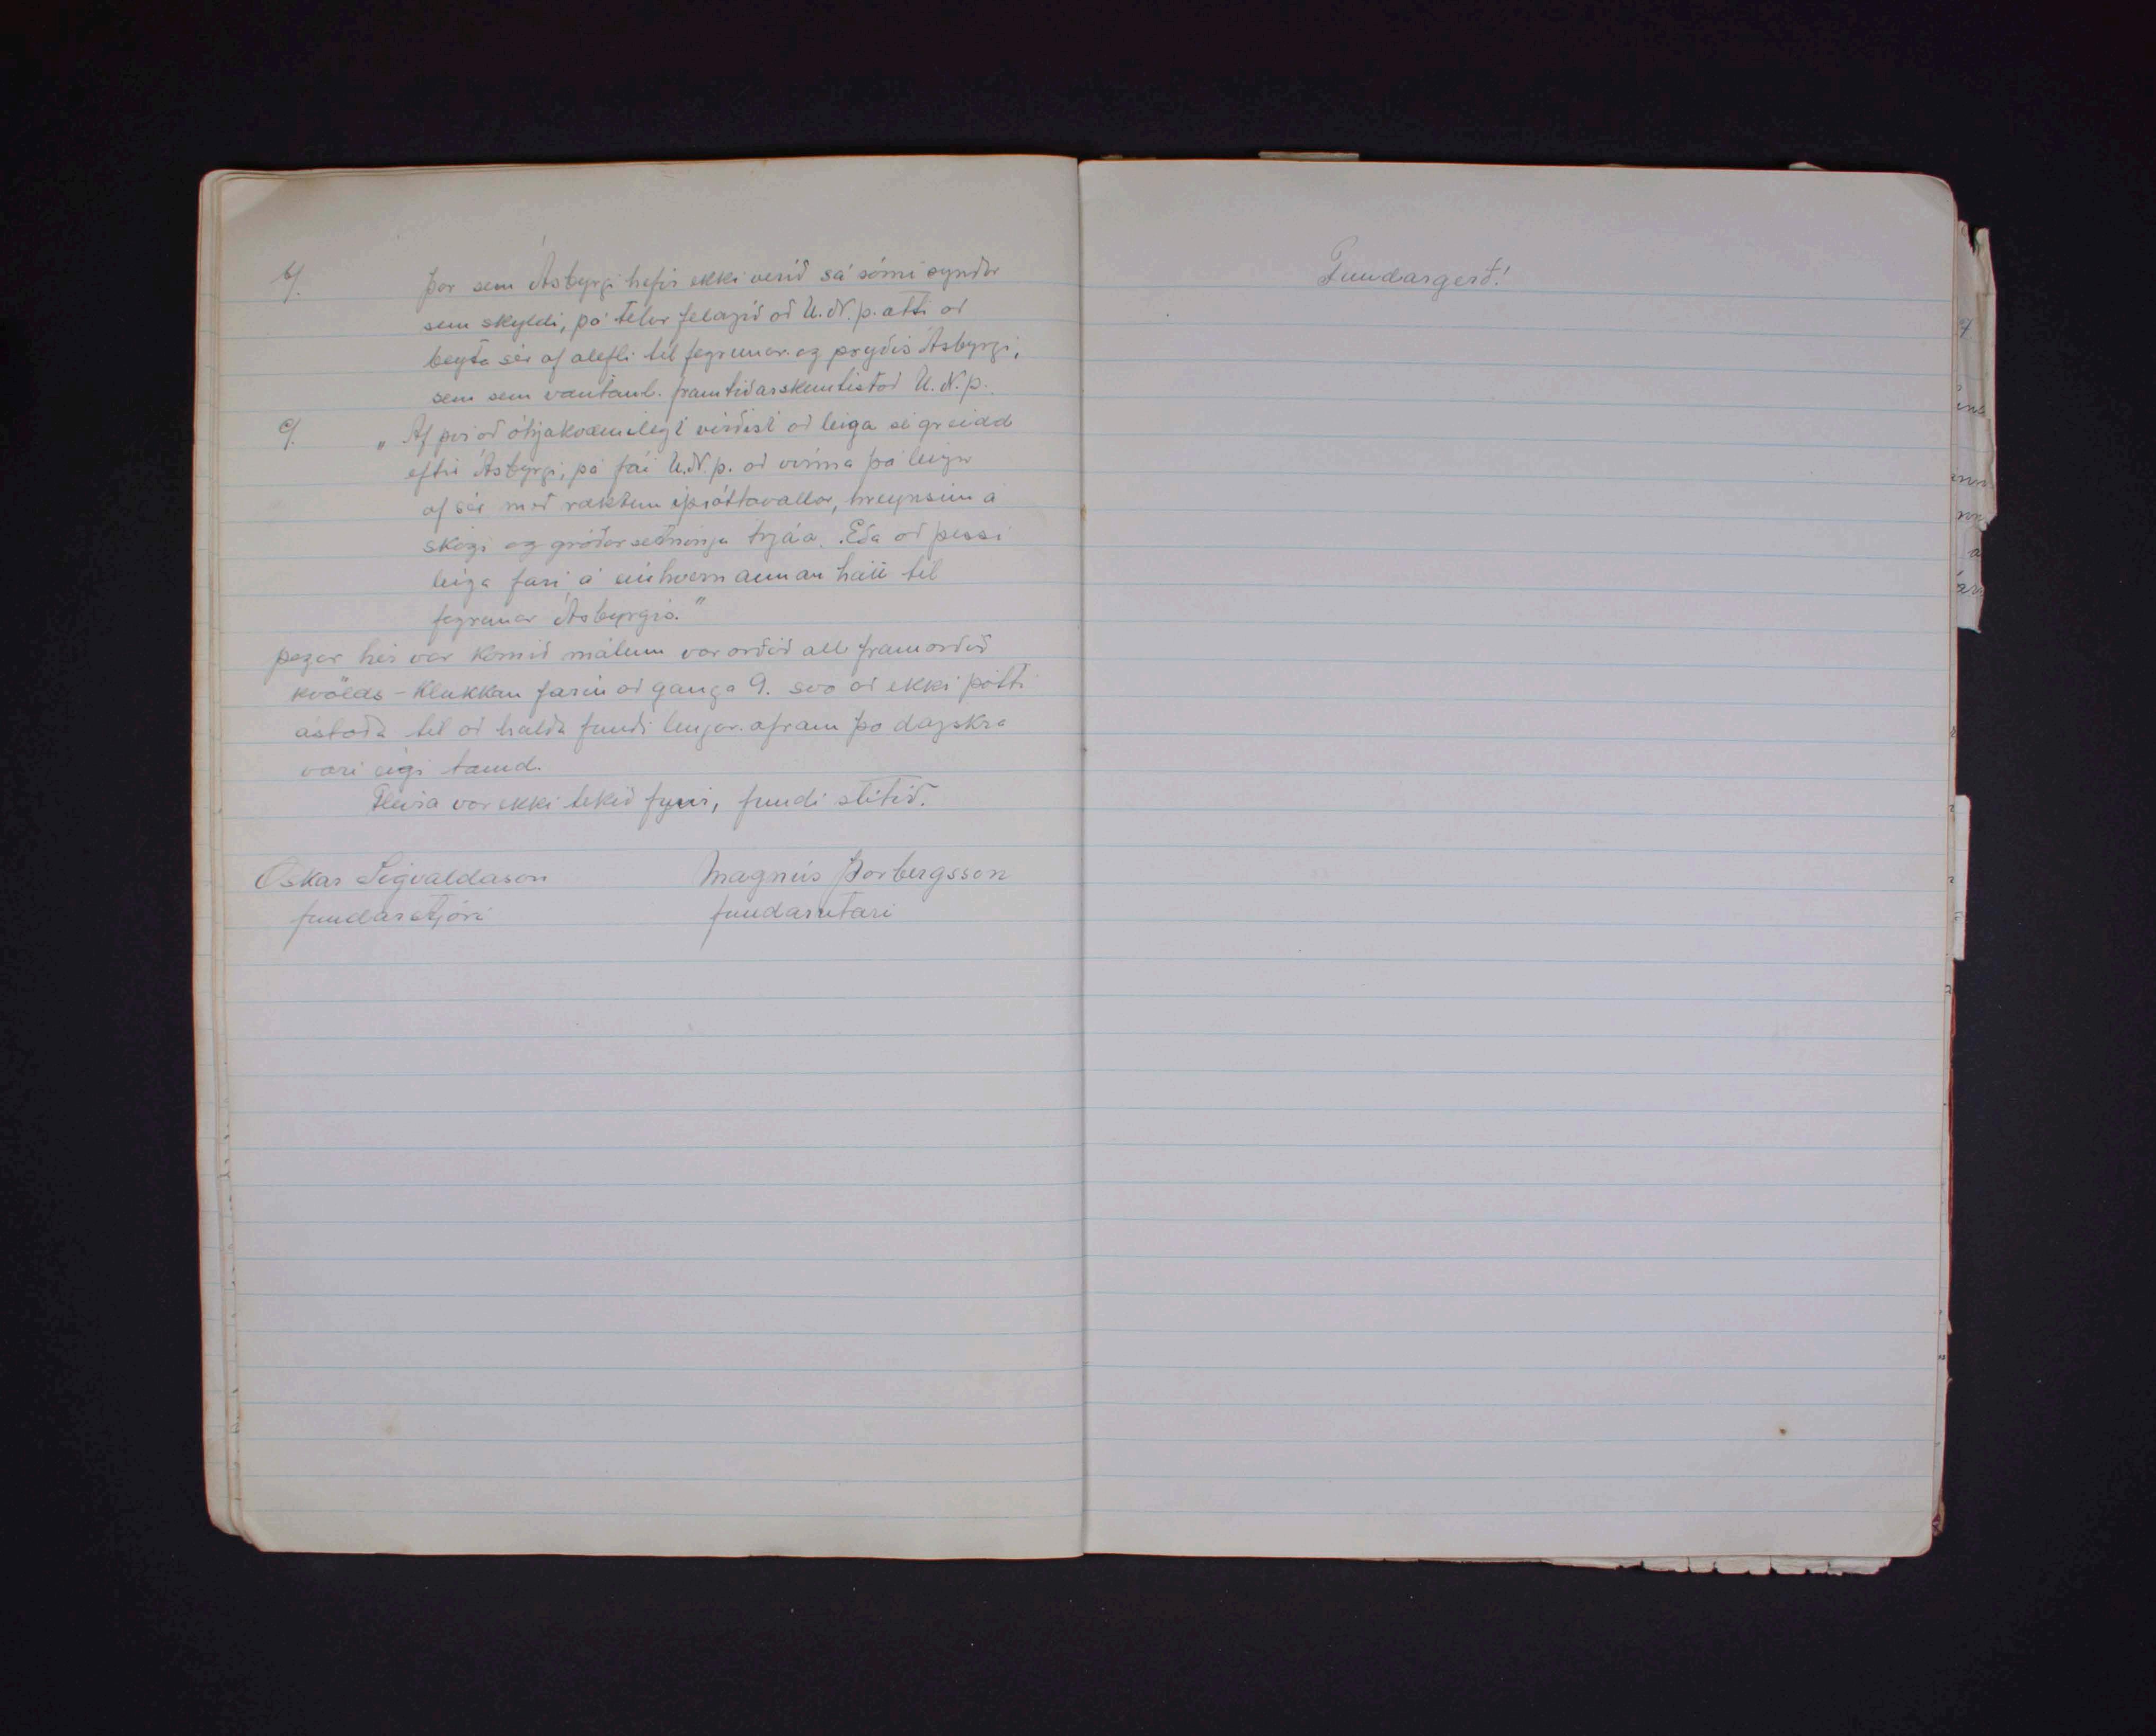 b/. Þar sem Ásbyrgi hefir ekki verið sá sómi syndur
sem skyldi, þá telur felagið að U.N.Þ. ætti að
beyta sér af alefli til fegrunar og prydis Ásbyrgi,
sem sem væntanl. framtiðarskemtistað U.N.Þ.
c/. „Af því að óhjákvæmilegt virðist að leiga sé greidd
eftir Ásbyrgi, þá fái U.N.Þ. að vinna þá leigu
af sér með ræktun íþróttavallar, hreynsun á
skógi og gróðursetninju trjáa. Eða að þessi
leiga fari á einhvern annan hátt til
fegrunar Ásbyrgis."
Þegar hér var komið málum var orðið all framorðið
kvölds - Klukkan farin að ganga 9. svo að ekki þótti
ástæða til að halda fundi lengur áfram þo dagskra
væri eigi tæmd.
Fleira var ekki tekið fyrir, fundi slitið.
Óskar Sigvaldason Magnús Þorbergsson
fundarstjóri fundarritari
Fundargerð!